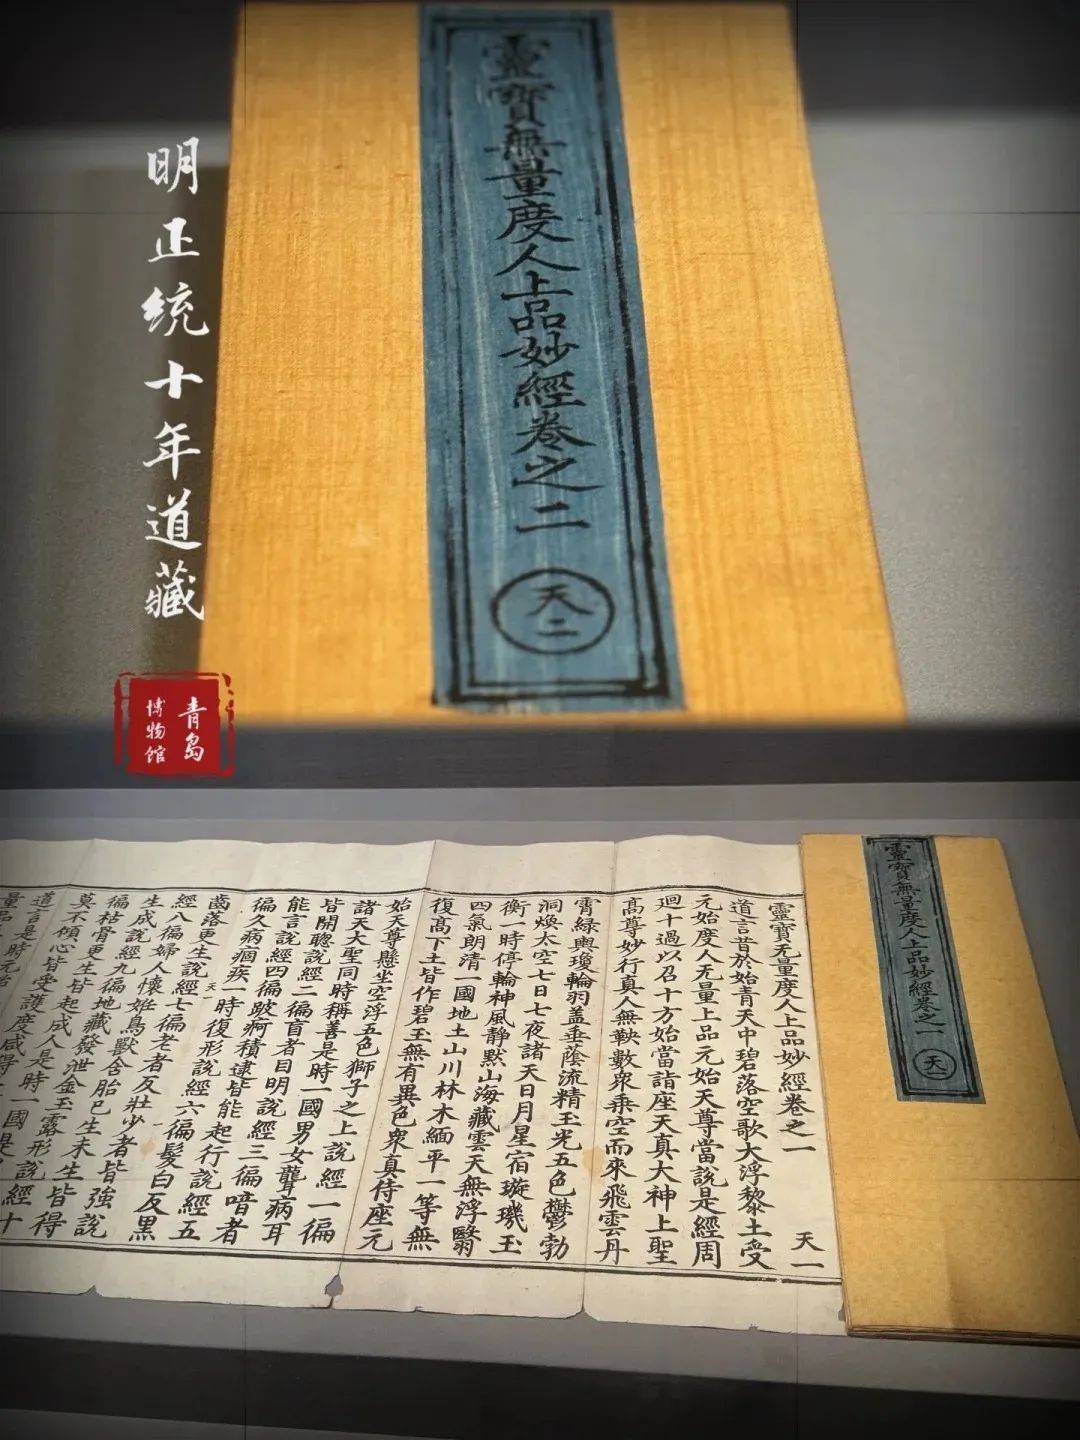 靈寶無量度人上品妙經卷之二
天二
明正統十年道藏
青島
博物館
靈寶無量度人上品妙經卷之一
天一
靈寶无量度人上品妙經卷之一 天一
道言昔於始青天中碧落空歌大浮黎土受
元始度人无量上品元始天尊當說是經周
迴十過以召十方始當詣座天真大神上聖
高尊妙行真人無鞅數衆乘空而來飛雲丹
霄綠輿瓊輪羽蓋垂蔭流精玉光五色鬱勃
洞煥太空七日七夜諸天日月星宿璇璣玉
衡一時停輪神風靜默山海藏雲天無浮翳
四氣朗清一國地土山川林木緬平一等無
復高下土皆作碧玉無有異色衆真侍座元
始天尊懸坐空浮五色獅子之上說經一徧
諸天大聖同時稱善是時一國男女聾病耳
皆開聰說經二徧盲者目明說經三徧喑者
能言說經四徧跛痾積逮皆能起行說經五
徧久病痼疾一時復形說經六徧髮白反黑
齒落更生說經七徧老者反壯少者皆強說
天一
經八徧婦人懷妊鳥獸含胎已生未生皆得
生成說經九徧地藏發泄金玉露形說經十
徧枯骨更生皆起成人是時一國是
莫不傾心皆受護度咸得
道言是時元始
量品